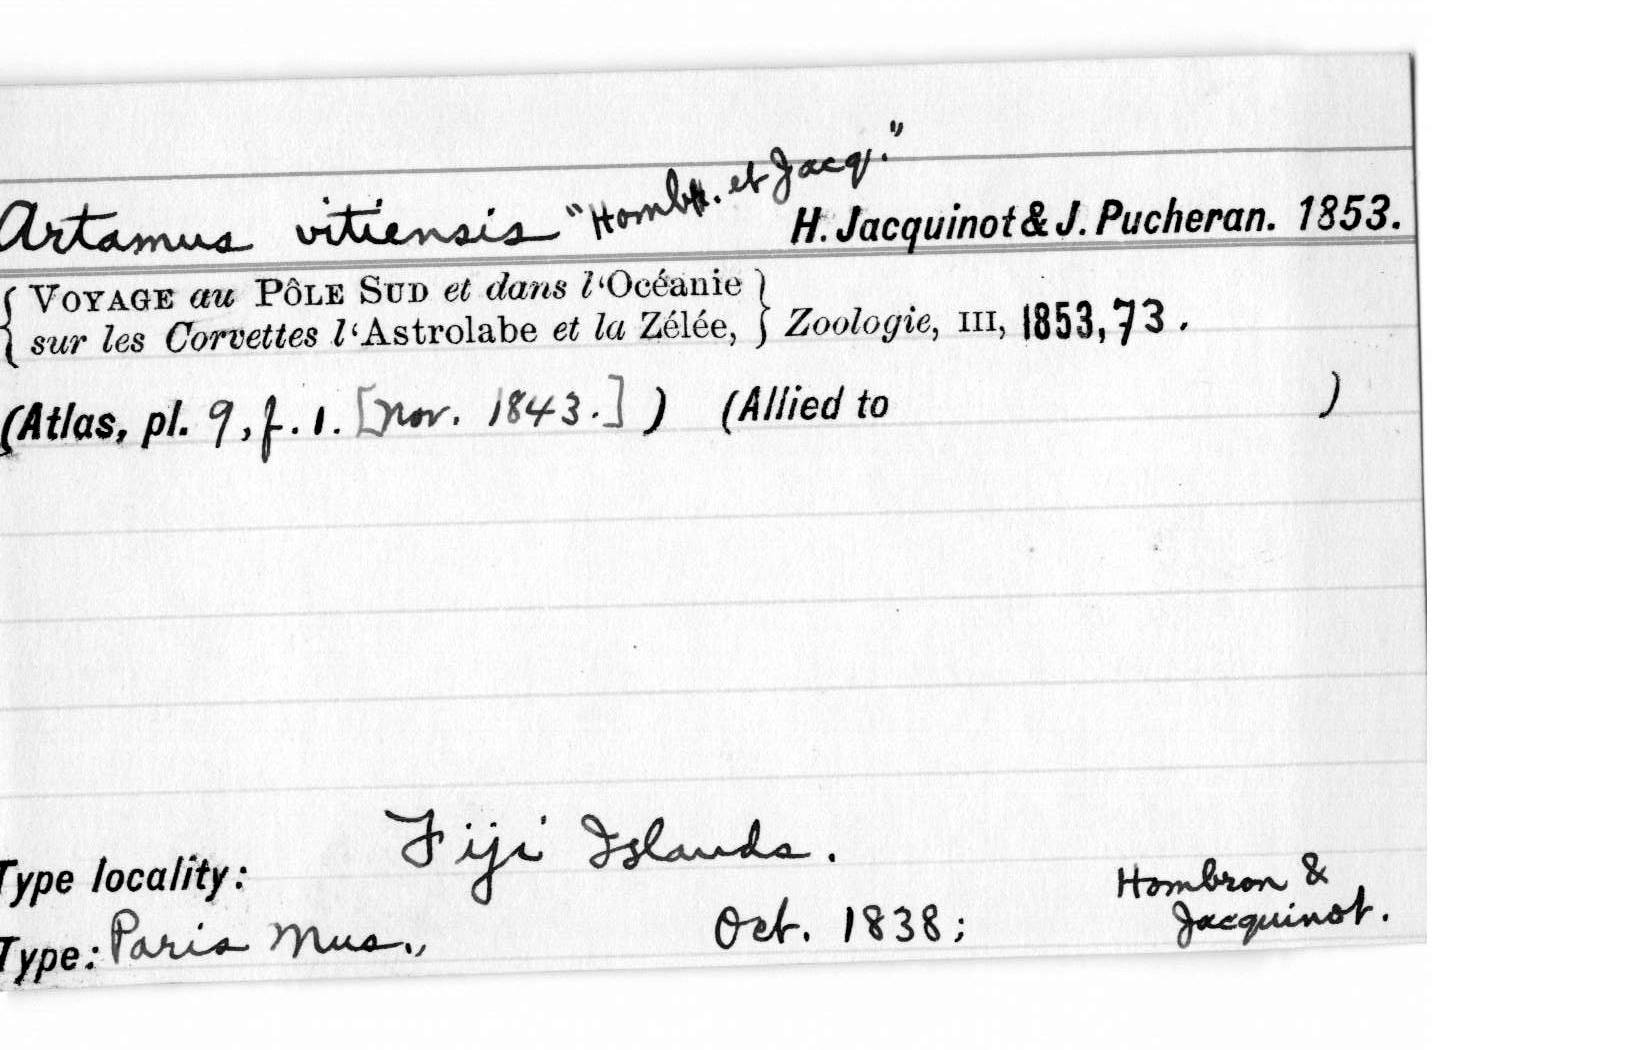 Artamus vitiensis "Hombr. et Jacq." H. Jacquinot & J. Pucheran. 1853.
{ VOYAGE au PÔLE SUD et dans l'Océanie }
{ sur les Corvettes l'Astrolabe et la Zélée, } Zoologie, III, 1853, 73.
(Atlas, pl. 9, f. 1. [Nov. 1843.] ) (Allied to )
Fiji Islands.
Type locality:
Hombron &
Type: Paris Mus., Oct. 1838; Jacquinot.